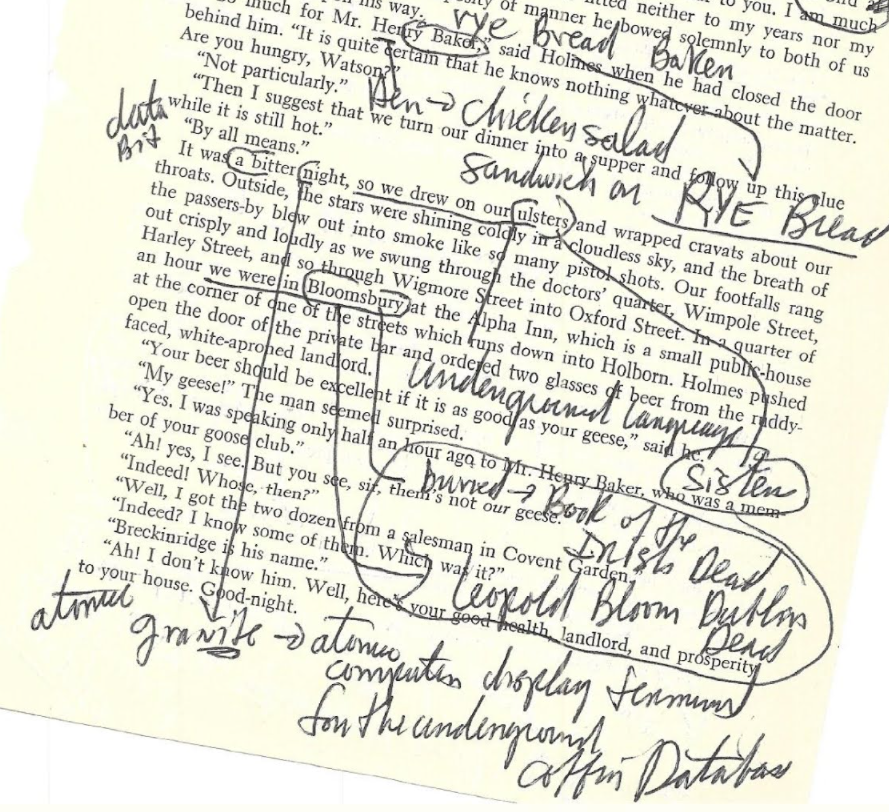 to you. I am much
fitted neither to my years nor my
of manner he bowed solemnly to both of us
his way.
much for Mr. Henry Baker," said Holmes when he had closed the door
behind him. "It is quite certain that he knows nothing whatever about the matter.
Are you hungry, Watson?"
"Not particularly."
"Then I suggest that we turn our dinner into a supper and follow up this clue
while it is still hot."
"By all means."
It was a bitter night, so we drew on our ulsters and wrapped cravats about our
throats. Outside, the stars were shining coldly in a cloudless sky, and the breath of
the passers-by blew out into smoke like so many pistol shots. Our footfalls rang
out crisply and loudly as we swung through the doctors' quarter, Wimpole Street,
Harley Street, and so through Wigmore Street into Oxford Street. In a quarter of
an hour we were in Bloomsbury at the Alpha Inn, which is a small public-house
at the corner of one of the streets which runs down into Holborn. Holmes pushed
open the door of the private bar and ordered two glasses of beer from the ruddy-
faced, white-aproned landlord.
"Your beer should be excellent if it is as good as your geese," said he.
"My geese!" The man seemed surprised.
"Yes. I was speaking only half an hour ago to Mr. Henry Baker, who was a mem-
ber of your goose club."
"Ah! yes, I see. But you see, sir, them's not our geese."
"Indeed! Whose, then?"
"Well, I got the two dozen from a salesman in Covent Garden."
"Indeed? I know some of them. Which was it?"
"Breckinridge is his name."
"Ah! I don't know him. Well, here's your good health, landlord, and prosperity
to your house. Good-night.
rye Bread Baker
Hen → chicken salad
sandwich on RYE Bread
data
Bit
underground language
sister
buried → Book of the
Irish Dead
Leopold Bloom Dublin
Dead
atomic
granite → atomic
computer display terminal
for the underground
coffin Database